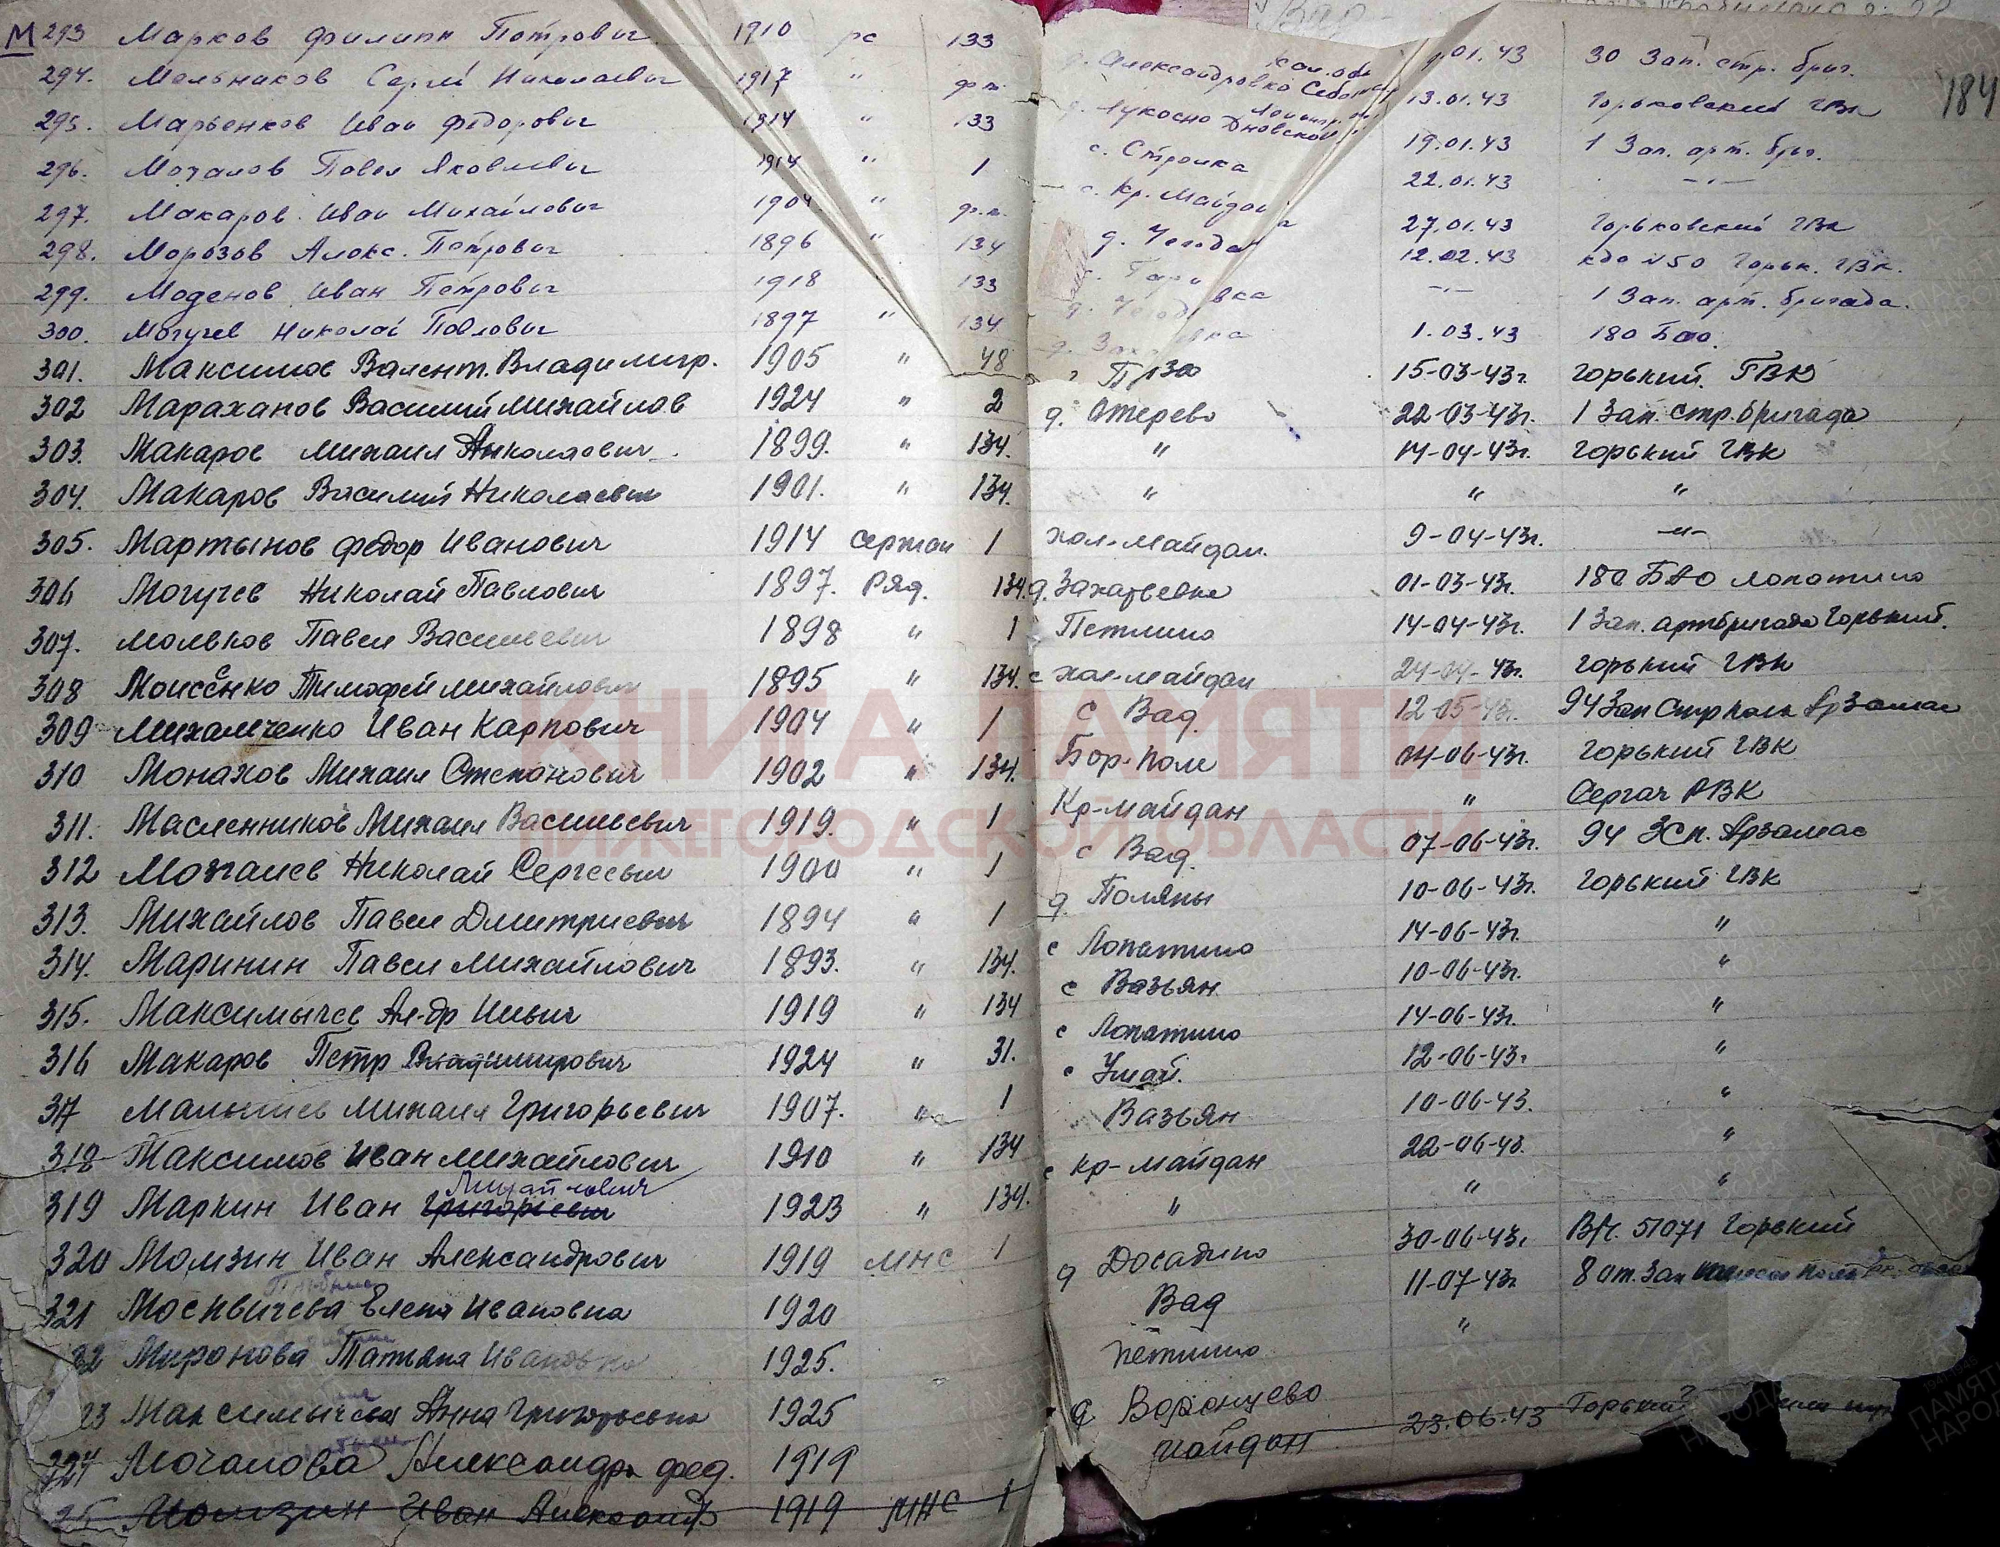 М 293 Марков Филипп Петрович 1910 рс 133 д. Александровка 01.43 30 Зап. стр. бриг. 184
294. Мельников Сергей Николаевич 1917 " ф.п. д. Лукосно Дновской 13.01.43 Горьковский ГВК
295. Марьенков Иван Федорович 1914 " 133 с. Стройка 19.01.43 1 Зап. арт. бриг.
296. Мочалов Павел Яковлевич 1914 " 1 с. Кр. Майдан 22.01.43 -"-
297. Макаров Иван Михайлович 1904 " ф.п. д. 27.01.43 Горьковский ГВК
298. Морозов Алекс. Петрович 1896 " 134 12.02.43 кдо №50 Горьк. ГВК.
299. Моденов Иван Петрович 1918 133 д. -"- 1 Зап. арт. бригада.
300. Могучев Николай Павлович 1897 " 134 д. 1.03.43 180 Бао.
301. Максимов Валент. Владимир. 1905 " 48 15-03-43г. Горький ГВК
302 Мараханов Василий Михайлов 1924 " 2 д. Стерево 22-03-43г. 1 Зап. стр. бригада
303. Макаров Михаил Николаевич 1899. " 134. " 14-04-43г. Горький ГВК
304. Макаров Василий Николаевич 1901. " 134. " " "
305. Мартынов Федор Иванович 1914 сержан 1 хол-Майдан. 9-04-43г. -"-
306 Могучев Николай Павлович 1897. Ряд. 134. д. Захарьевка 01-03-43г. 180 БАО Лопатино
307. Мольков Павел Васильевич 1898 " 1 Петлино 14-04-43г. 1 Зап. артбригада Горький.
308 Моисеенко Тимофей Михайлович 1895 " 134. с хол-Майдан 24-04-43г. Горький ГВК
309 Михальченко Иван Карпович 1904 " 1 с Вад. 12-05-43г. 94 Зап Стр полк Арзамас
310 Монахов Михаил Степанович 1902 " 134. Бор-Поле 04-06-43г. Горький ГВК
311. Масленников Михаил Васильевич 1919. " 1 Кр-Майдан " Сергач РВК
312 Мохалев Николай Сергеевич 1900 " 1 с Вад. 07-06-43г. 94 ЗСП. Арзамас
313. Михайлов Павел Дмитриевич 1894 " 1 д. Поляны 10-06-43г. Горький ГВК
314. Маринин Павел Михайлович 1893. " 134. с Лопатино 14-06-43г. "
315. Максимычев Ал-др Ильич 1919 " 134 с Вазьян 10-06-43г. "
316 Макаров Петр Владимирович 1924 " 31. с Лопатино 14-06-43г. "
317 Малышев Михаил Григорьевич 1907. " 1 с Умай. 12-06-43г "
318 Максимов Иван Михайлович 1910 " 134 Вазьян 10-06-43. "
Михайлович
319 Маркин Иван Григорьевич 1923 " 134. с Кр-Майдан 22-06-43. "
320 Момзин Иван Александрович 1919 МНС 1 " " "
321 Москвичева Елена Ивановна 1920 д Досадино 30-06-43г В/ч. 51071 Горький
22 Миронова Татьяна Ивановна 1925. Вад 11-07-43г 8 от. Зап
23 Максимычева Анна Григорьевна 1925 Петлино "
324 Мочалова Александра Фед. 1919 д Воронцево
25 Момзин Иван Александр 1919 МНС 1 Майдан 23.06.43 Горький
КНИГА ПАМЯТИ
НИЖЕГОРОДСКОЙ ОБЛАСТИ